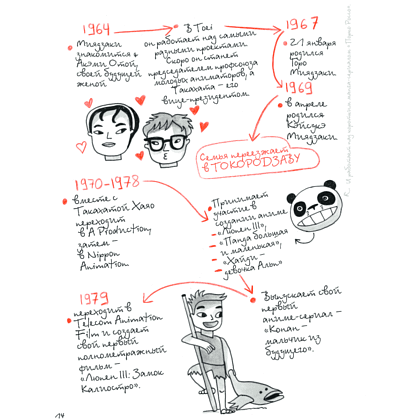 1964
• Миядзаки
знакомится с
Акэми Отой,
своей будущей
женой
В Toei
он работает над самыми
разными проектами
Скоро он станет
председателем профсоюза
молодых аниматоров, а
Такахата – его
вице-президентом
1967
• 21 января
родился
Горо
Миядзаки
1969
• в апреле
родился
Кэйсукэ
Миядзаки
Семья переезжает
в ТОКОРОДЗАВУ
1970-1978
• вместе с
Такахатой Хаяо
переходит
в A Production,
затем –
в Nippon
Animation
• Принимает
участие в
создании аниме
– «Люпен III»,
– «Панда большая
и маленькая»,
– «Хайди –
девочка Альп»
• Выпускает свой
первый
аниме-сериал –
«Конан –
мальчик из
будущего».
1979
• переходит в
Telecom Animation
Film и создает
свой первый
полнометражный
фильм –
«Люпен III: Замок
Калиостро».
14